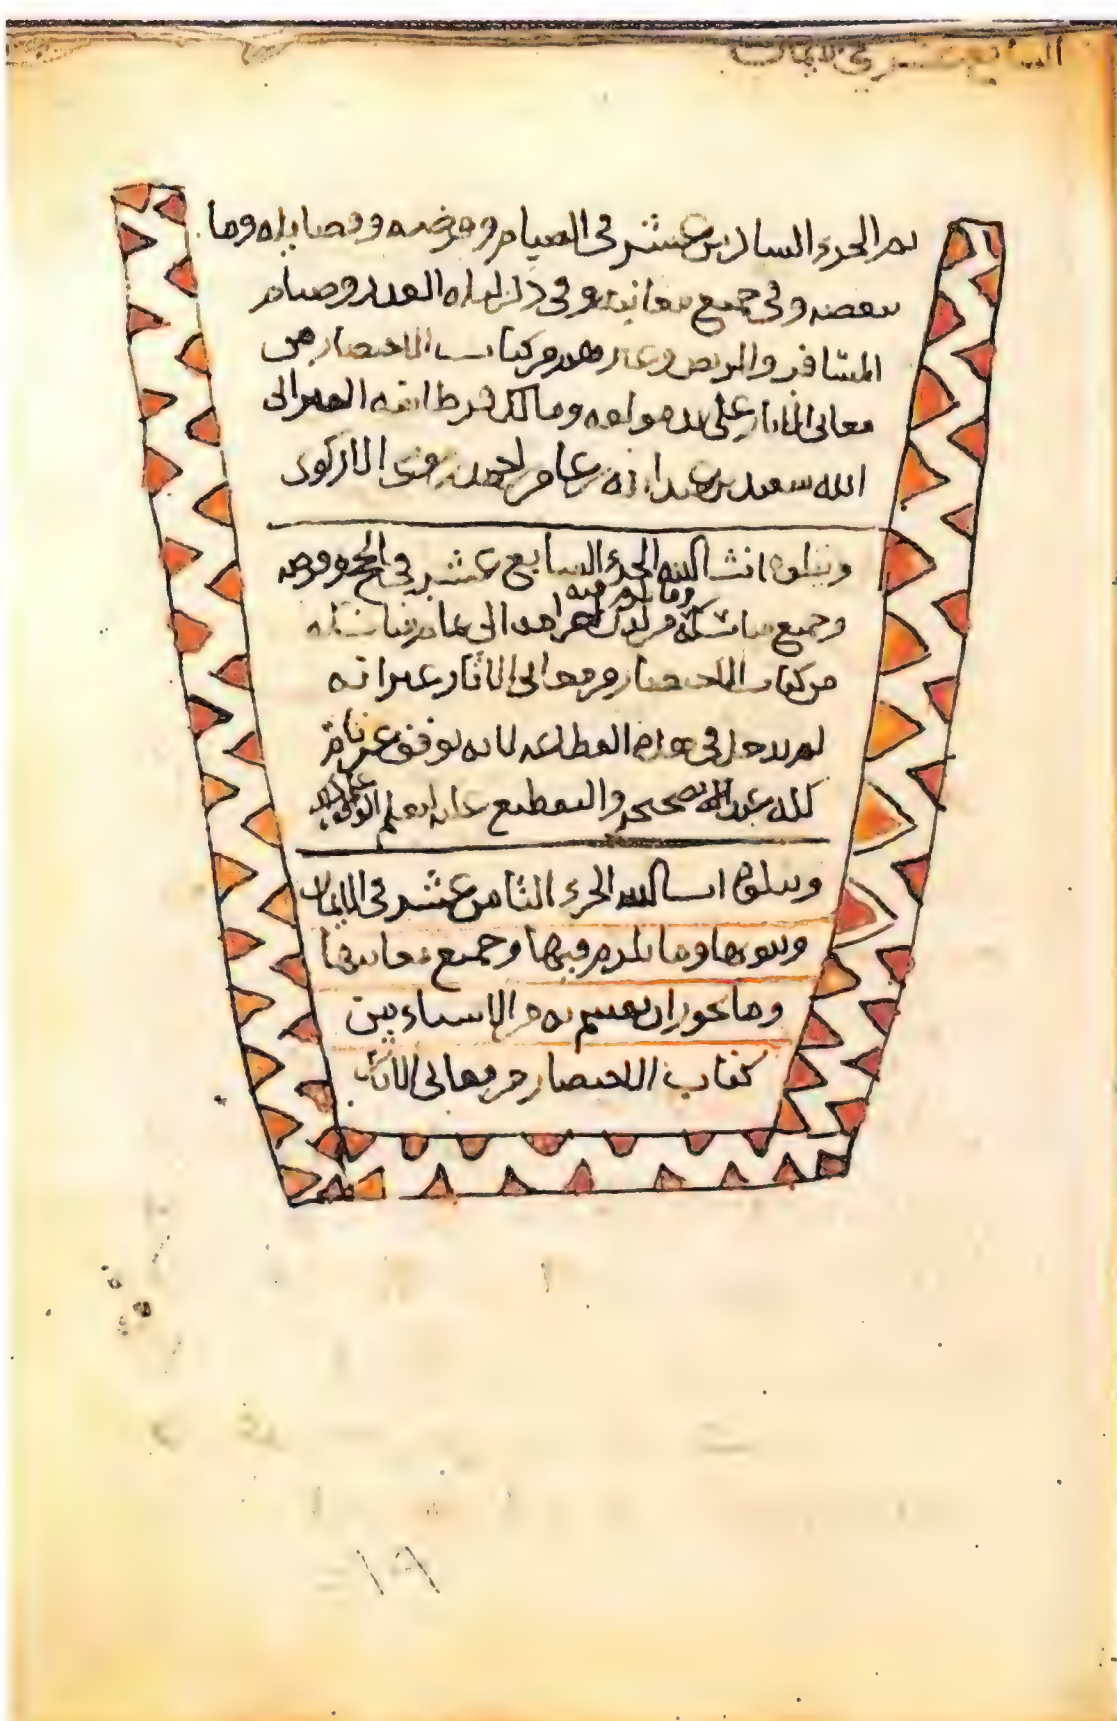 السابع عشر في الايمان
تم الجزء السادس عشر في الصيام وفرضه وفضايله وما
ينقضه وفي جميع معانيه وفي ذكر ليلة القدر وصيام
المسافر والمريض وغيرهم من كتاب الاختصار من
معاني الاثار على يد مولفه ومالكه من طاعته الفقير الى
الله سعيد بن عبدالله بن عامر بن احمد الازكوي
ويتلوه انشا الله الجزء السابع عشر في الحج وفرضه
وما يلزم فيه
وجميع مناسكه من لدن احرامه الى تمام مناسكه
من كتاب الاختصار من معاني الاثار غير انه
لم يدخل في هذه القطاعه لانه توقف عن تمام
كله عبدالله والتقطيع عليه
ويتلوه انشا الله الجزء الثامن عشر في الايمان
وما يلزم فيها وجميع معانيها
وما يجوز ان يقسم به من الاسماء من
كتاب الاختصار من معاني الاثار